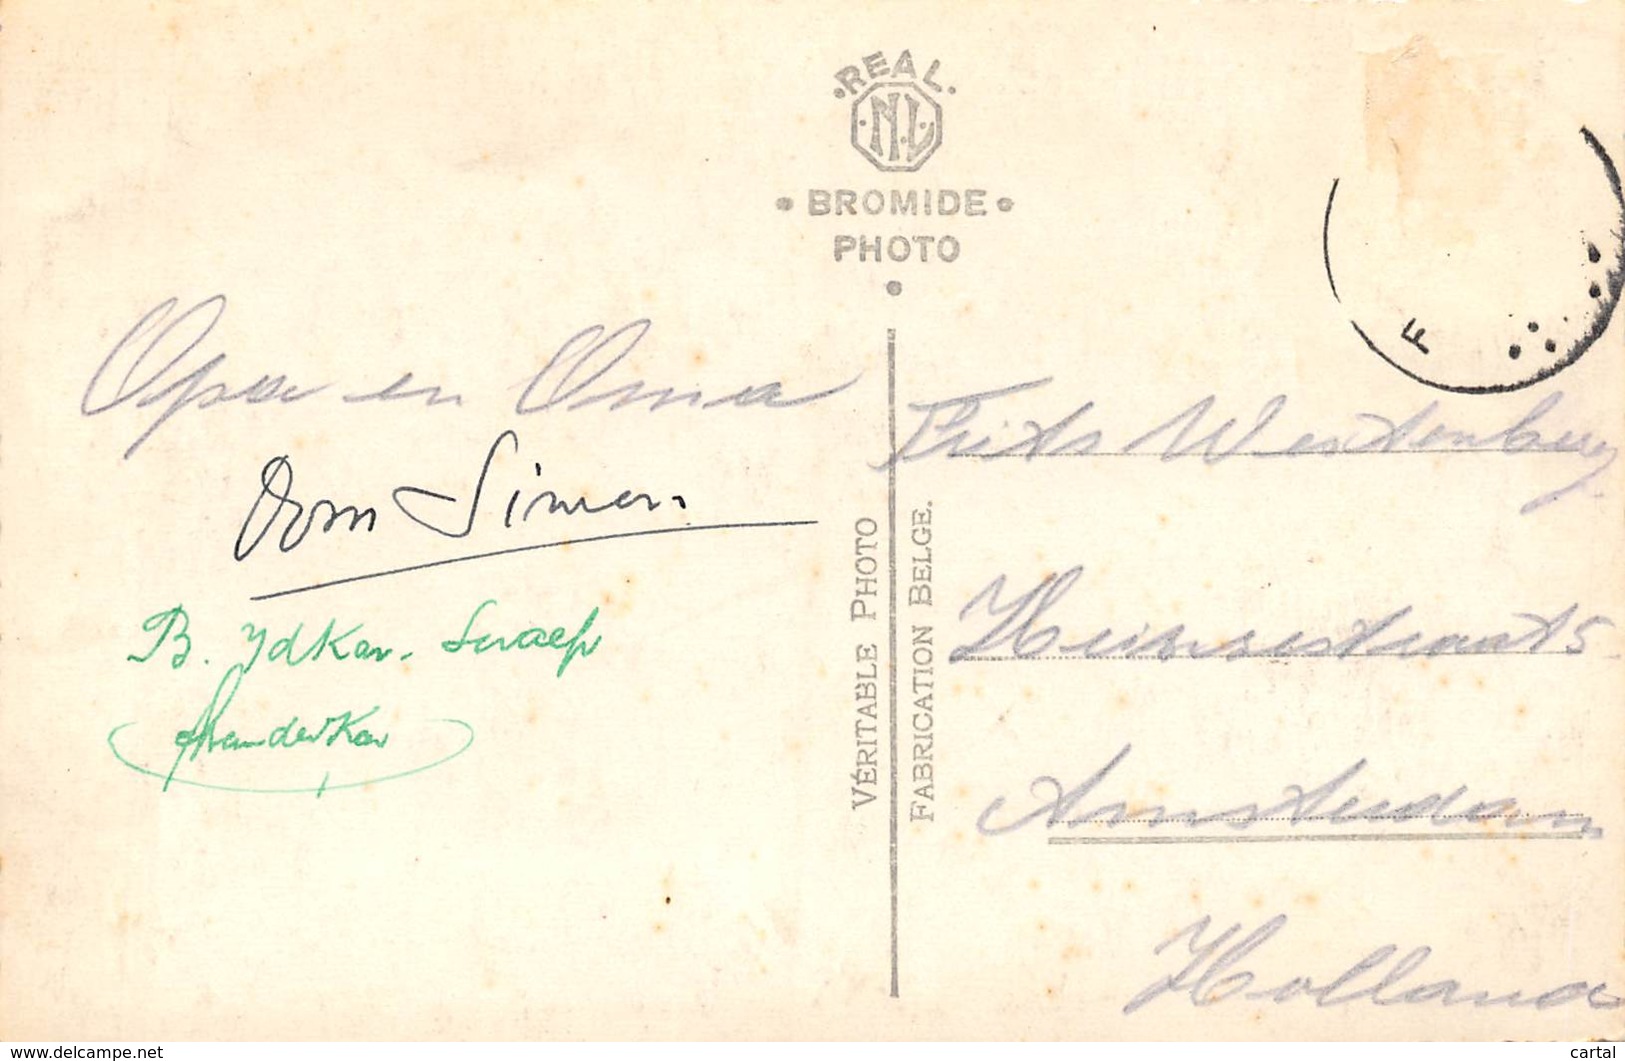 REAL
N.L.
BROMIDE
PHOTO
Opa en Oma
Oom Simon
B.
VÉRITABLE PHOTO
FABRICATION BELGE.
F
Frits Westenberg
Amsterdam
Holland
www.delcampe.net
cartal